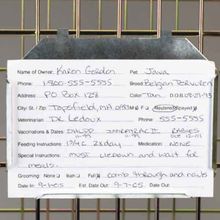 Name of Owner: Karen Gordon Pet: Java
Phone: 1-800-555-5555 Breed: Belgian Tervuren
Address: PO Box 128 Color: Tan D.O.B.
City / St. / Zip Topsfield, MA Neutered Spayed
Veterinarian Dr. Ledoux Phone 555-5555
Vaccinations & Dates: DHLPP RABIES
Feeding Instructions: 1/2 c 2x day Medication: NONE
Special Instructions: must liedown and wait for
meals
Grooming: None Bath Full comb through and nails
Date In: Est. Date Out: 9-7-05